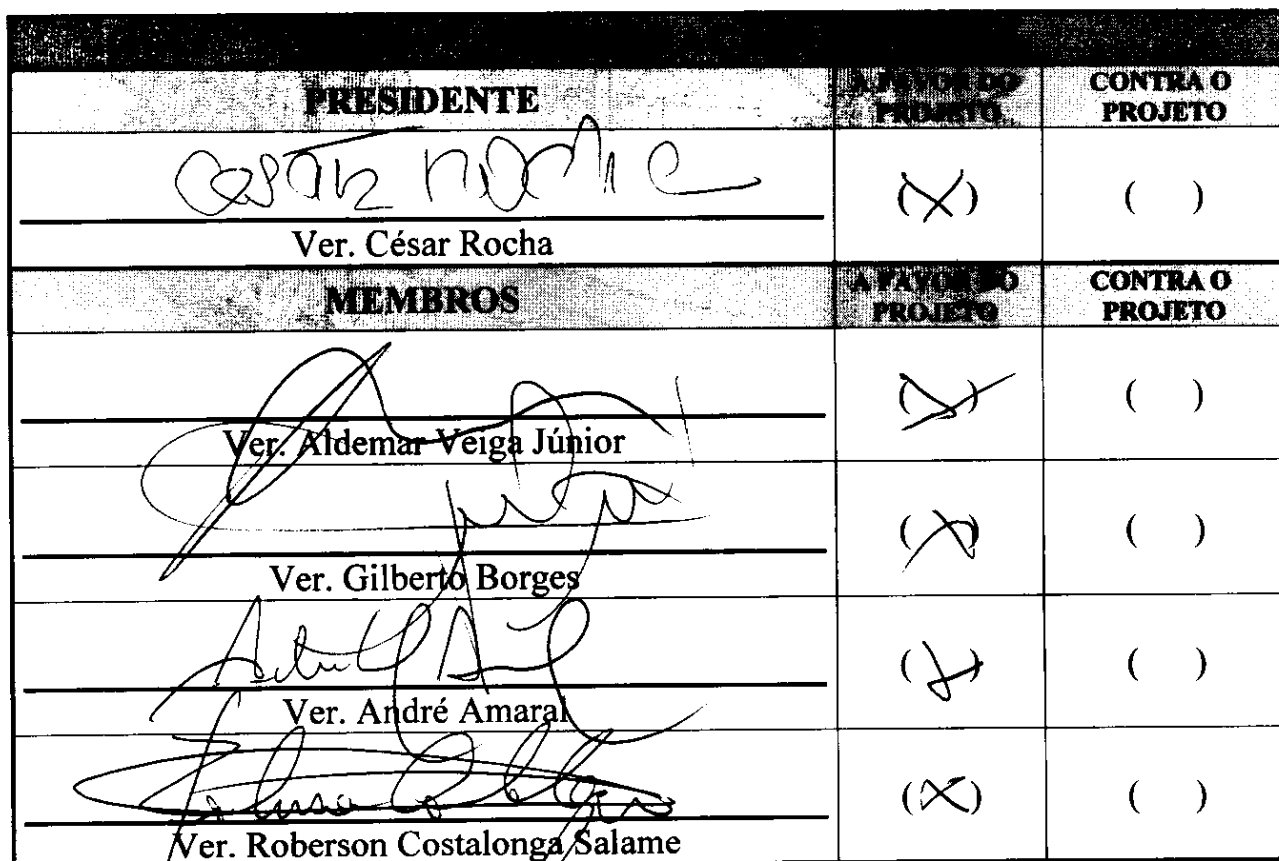 PRESIDENTE
A FAVOR DO PROJETO
CONTRA O PROJETO
César Rocha
(X)
( )
Ver. César Rocha
MEMBROS
A FAVOR DO PROJETO
CONTRA O PROJETO
(X)
( )
Ver. Aldemar Veiga Júnior
(X)
( )
Ver. Gilberto Borges
(X)
( )
Ver. André Amaral
(X)
( )
Ver. Roberson Costalonga Salame